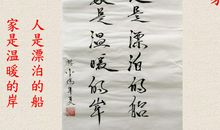 人是漂泊的船
家是温暖的岸
是漂泊的船
是温暖的岸